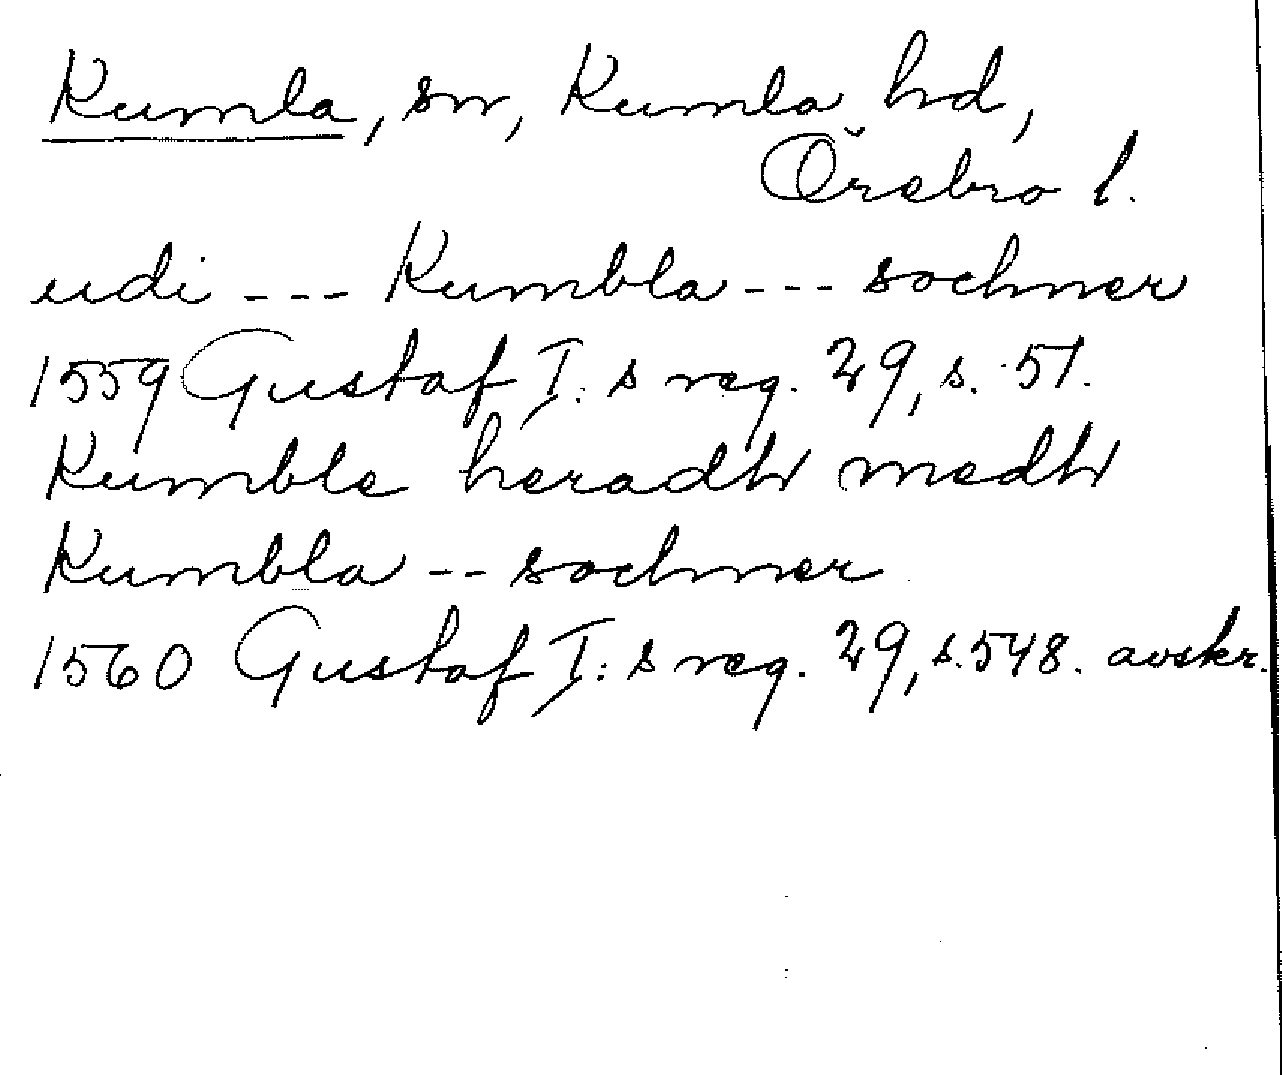 Kumla, sn, Kumla hd,
Örebro l.
udi --- Kumbla --- sochner
1559 Gustaf I: s reg. 29, s. 51.
Kumble heradh medh
Kumbla -- sochner
1560 Gustaf I: s reg. 29, s. 548. avskr.